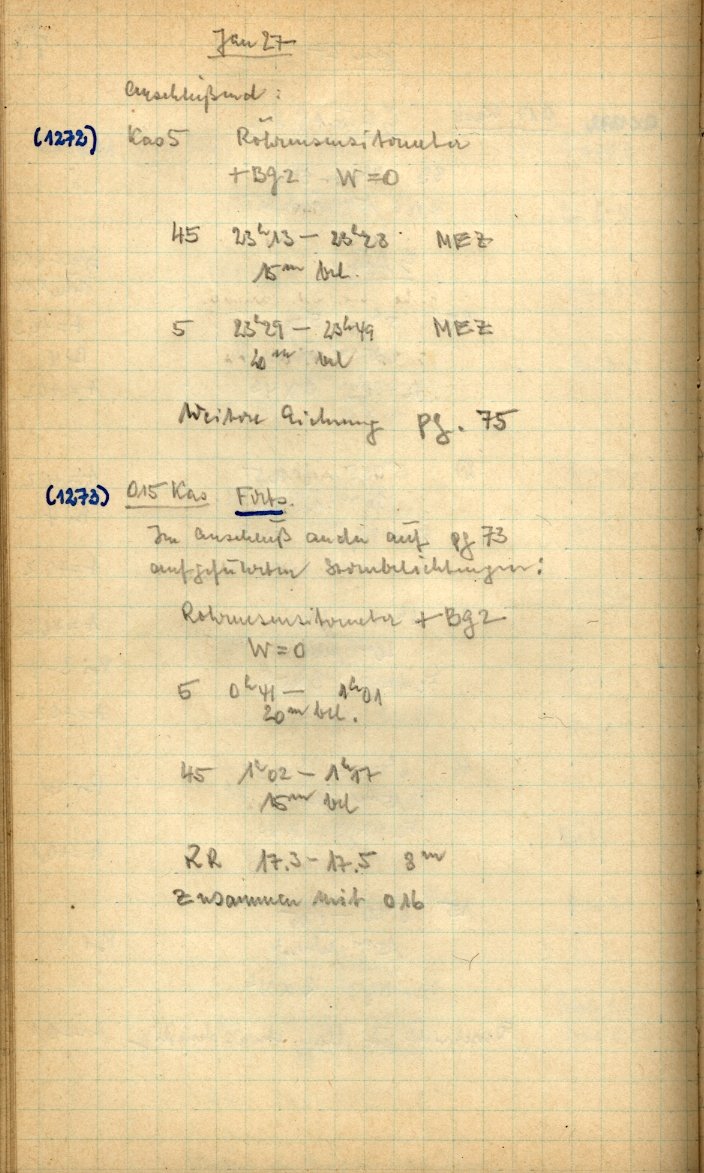 Jan 27
Anschließend:
(1272) Kao5 Röhrensensitometer
+Bg2 W=0
45 23h13 – 23h28 MEZ
15m bel.
5 23h29 – 23h49 MEZ
20m bel
Weitere Eichung pg. 75
(1273) 015 Kao
Im Anschluß an die auf pg 73
aufgeführten Sternbelichtungen:
Rohrensensitometer + Bg2
W=0
5 0h41 – 1h01
20m bel.
45 1h02 – 1h17
15m bel
RR 17.3–17.5 8m
Zusammen mit 016